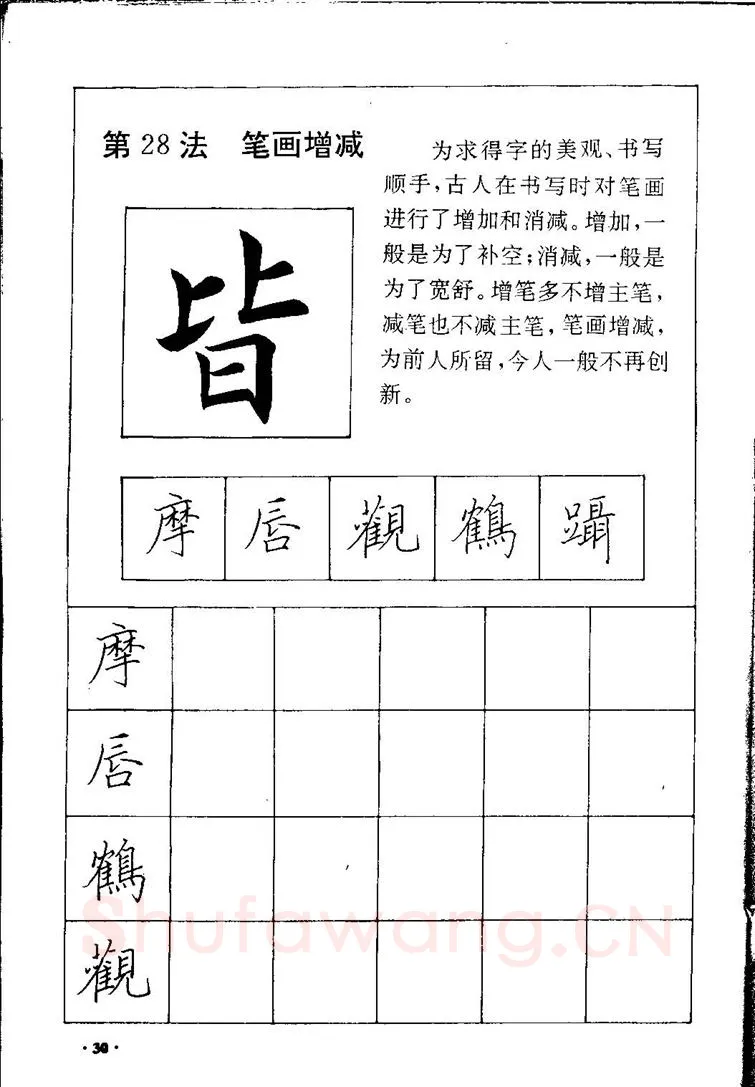 第28法 笔画增减
为求得字的美观、书写
顺手，古人在书写时对笔画
进行了增加和消减。增加，一
般是为了补空；消减，一般是
为了宽舒。增笔多不增主笔，
减笔也不减主笔，笔画增减，
为前人所留，今人一般不再创
新。
皆
摩 唇 觀 鶴 躡
摩
唇
鶴
觀
Shufawang.CN
·30·